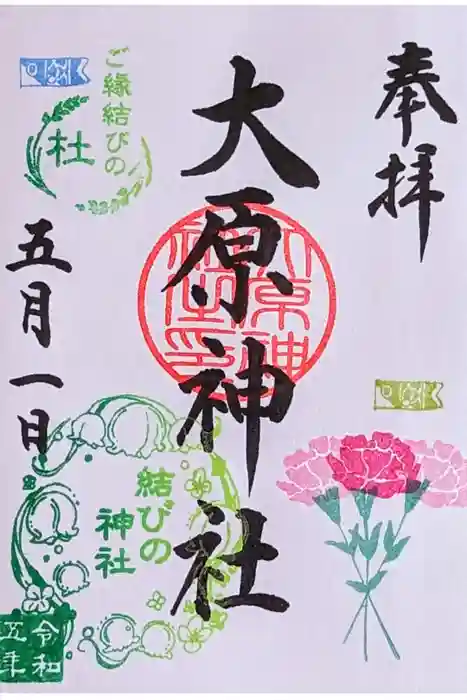 奉拝
大原神社
大原神社之印
ご縁結びの
杜
五月一日
結びの
神社
令和
五年